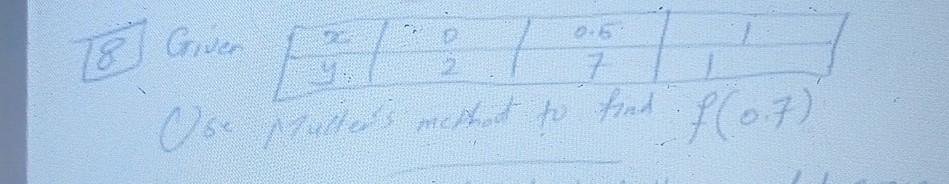 8 Given x 0 0.5 1
y 2 7 1
Use Muller's method to find f(0.7)